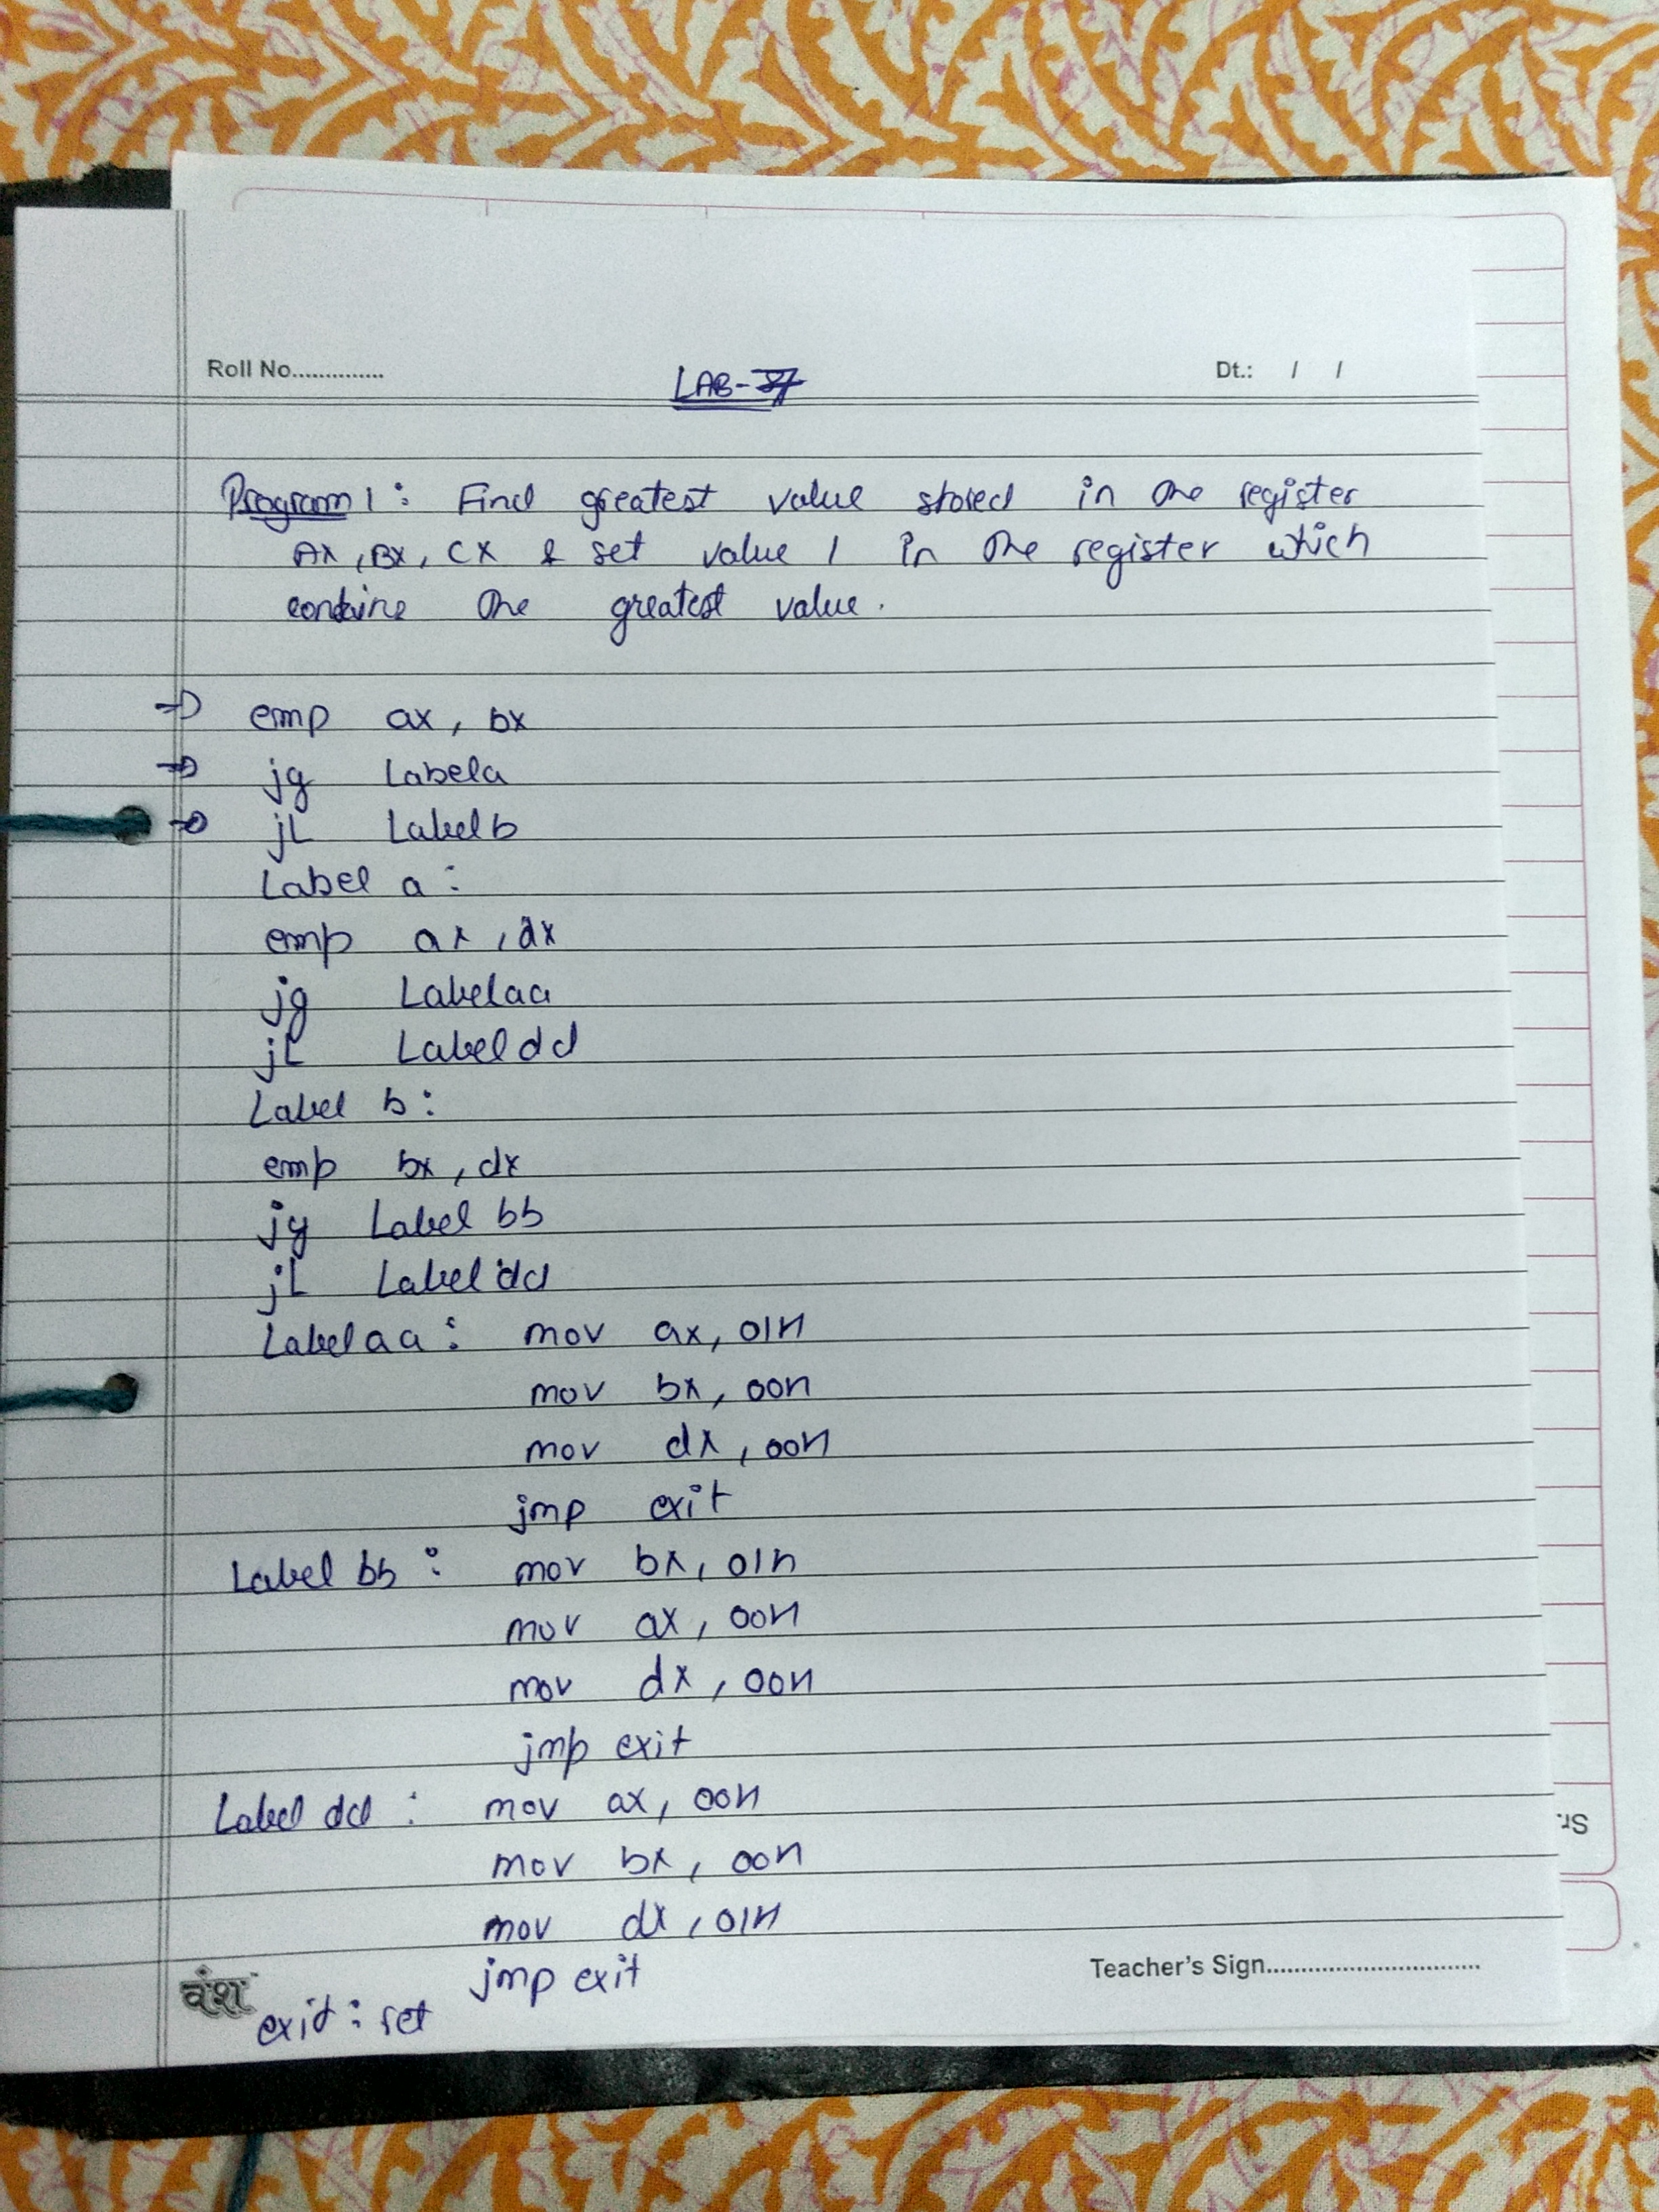 Roll No..............
LAB-
Dt.: / /
Program 1: Find greatest value stored in the register
AX, BX, CX & set value 1 in the register which
contains the greatest value.
cmp ax, bx
jg Labela
jL Labelb
Label a:
cmp ax, dx
jg Labelaa
jL Labeldd
Label b:
cmp bx, dx
jg Label bb
jL Labeldd
Labelaa: mov ax, 01H
mov bx, 00H
mov dx, 00H
jmp exit
Label bb: mov bx, 01h
mov ax, 00H
mov dx, 00H
jmp exit
Label dd: mov ax, 00H
mov bx, 00H
mov dx, 01H
jmp exit
exit: ret
वंश
Teacher's Sign.................................